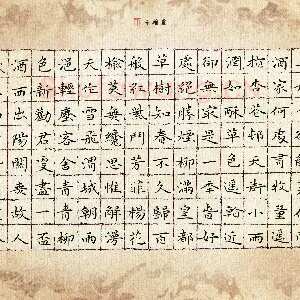 酒家何處有牧童遙
指杏花村天街小雨
潤如酥草色遙看近
卻無最是一年春好
處絕勝煙柳滿皇都
草樹知春不久歸百
般紅紫鬥芳菲楊花
榆莢無才思惟解漫
天作雪飛渭城朝雨
浥輕塵客舍青青柳
色新勸君更盡一盃
酒西出陽關無故人